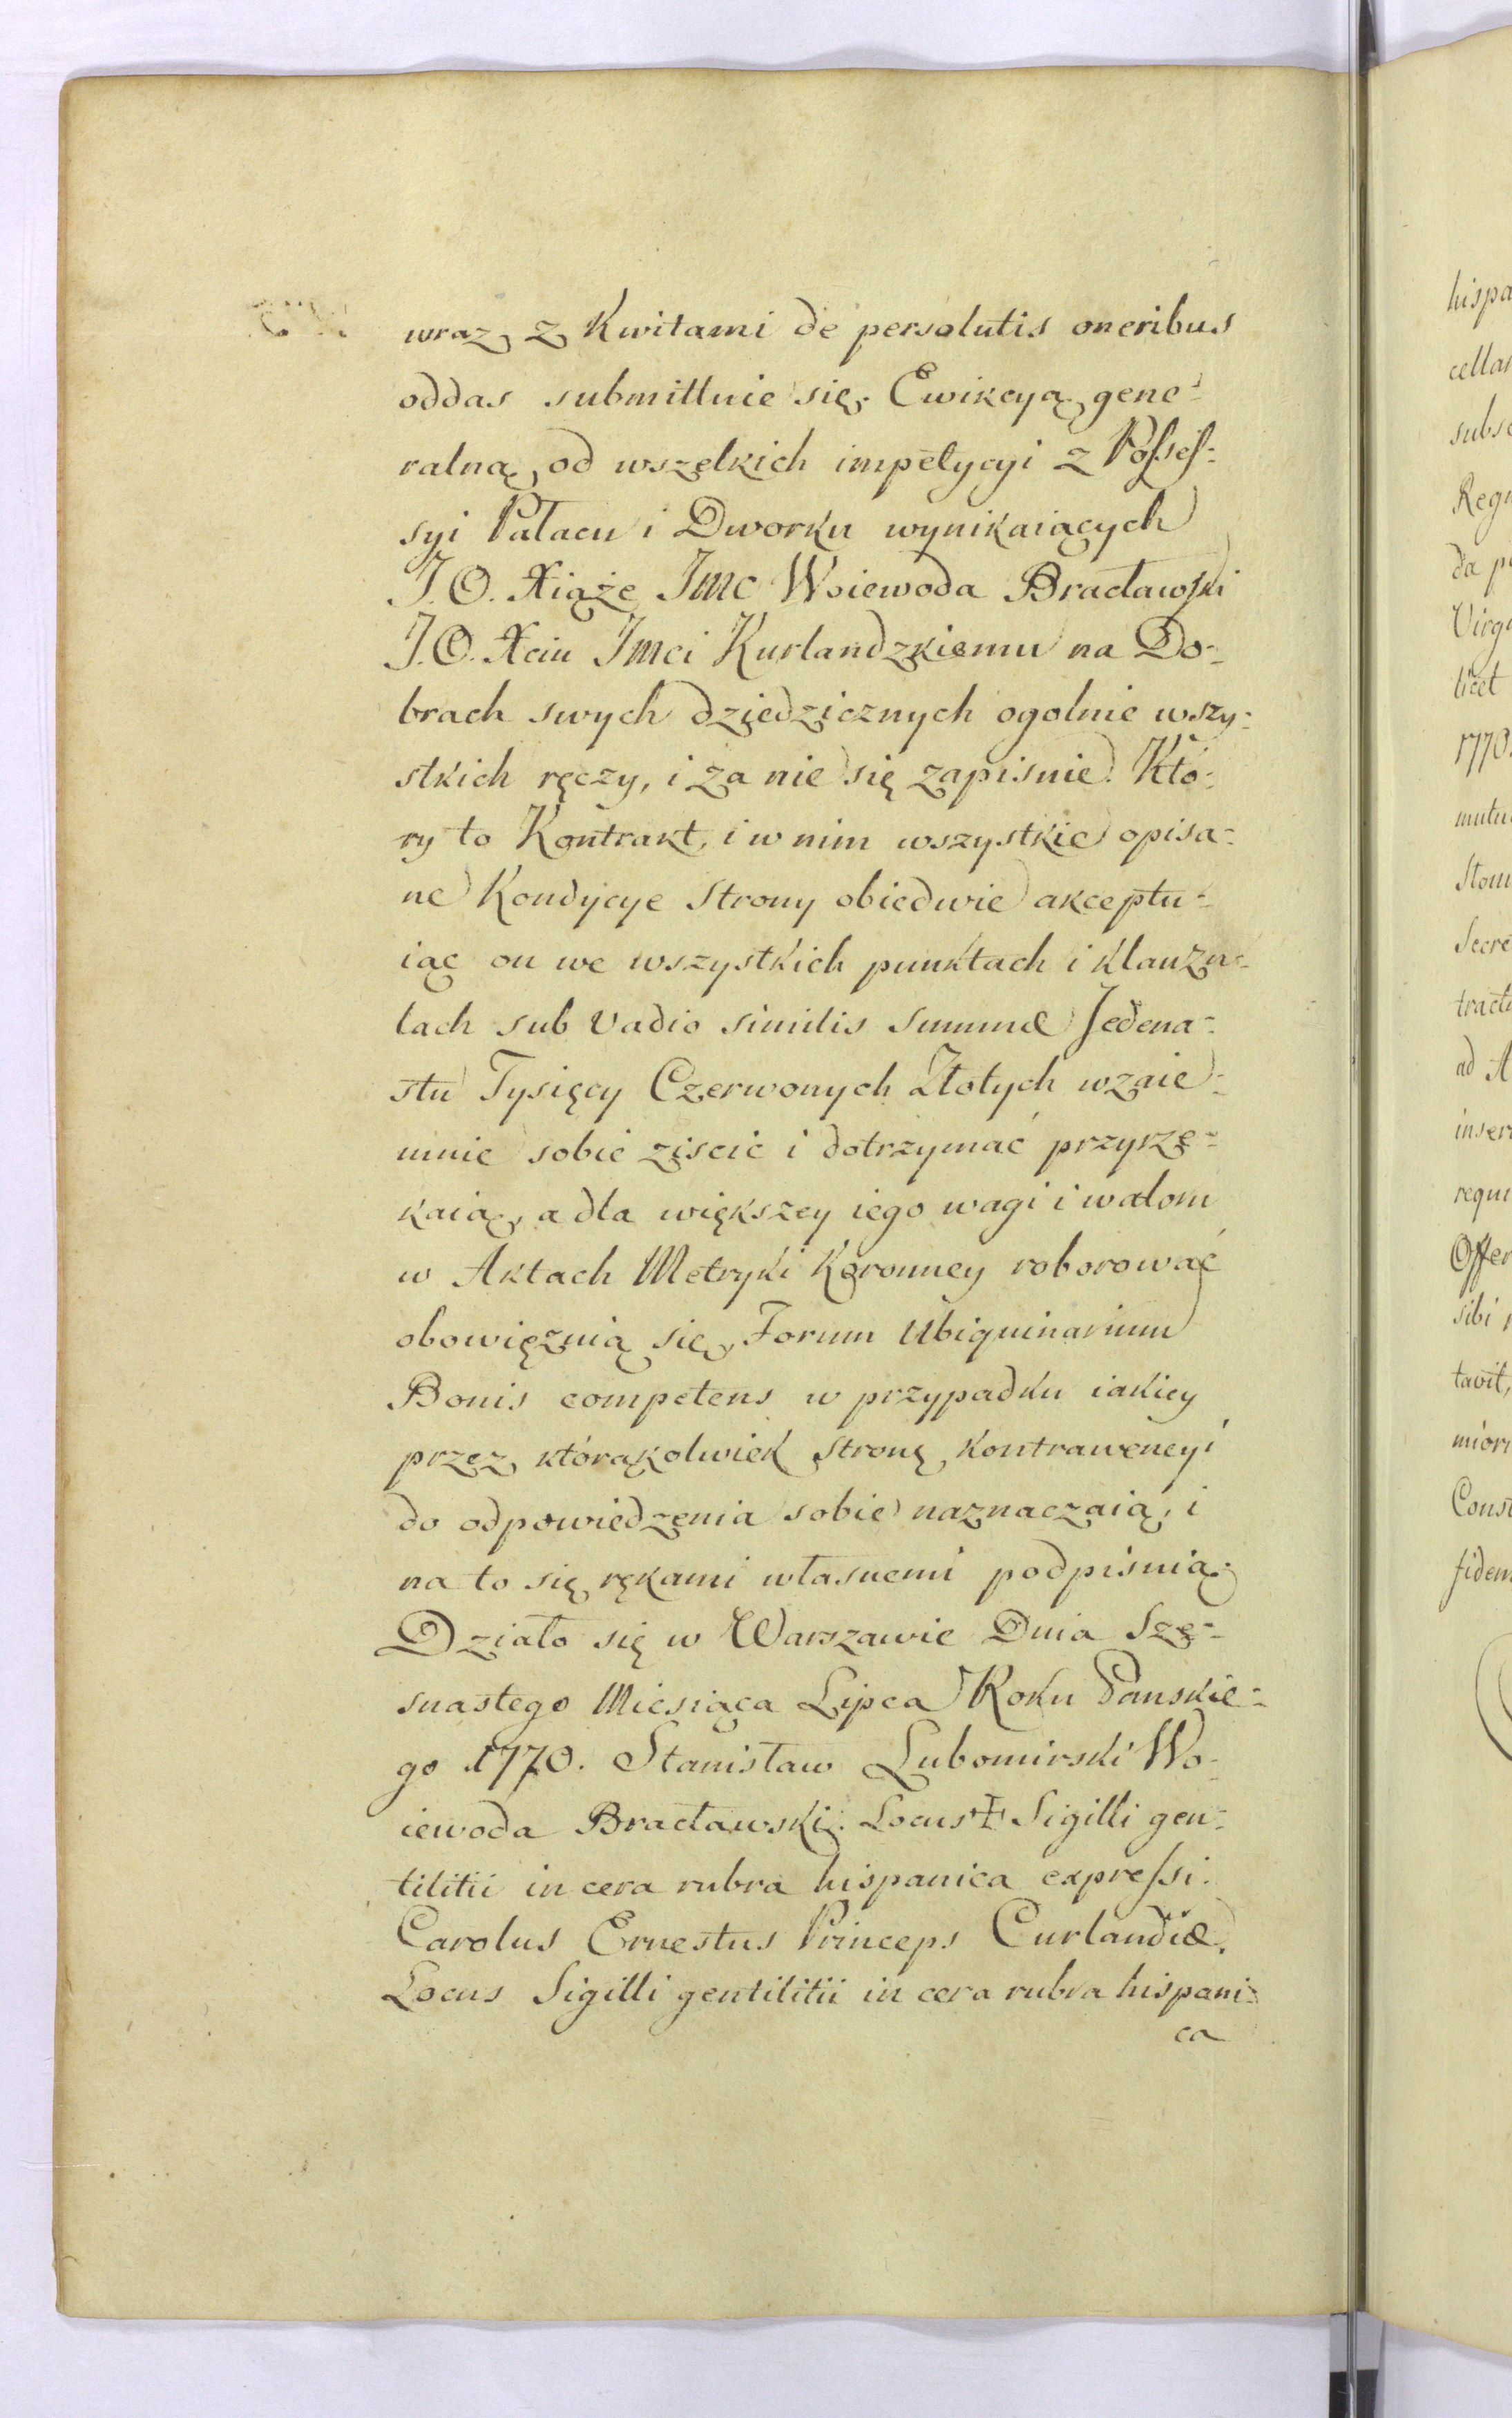 wraz z Kwitami de persolutis oneribus
oddas submittuie się. Ewikcyą gene-
ralną od wszelkich impetycyi z Possess-
syi Pałacu i Dworku wynikaiących
J.O. Xiąże Jmc Woiewoda Bracławski
J.O. Xciu Jmci Kurlandzkiemu na Do-
brach swych dziedzicznych ogolnie wszy-
stkich ręczy, i za nie się zapisuie. Kto-
ry to Kontrakt, i w nim wszystkie opisa-
ne Kondycye Strony obiedwie akceptu-
iąc on we wszystkich punktach i klauzu-
lach sub vadio similis summæ Jedena-
stu Tysięcy Czerwonych Złotych wzaie-
mnie sobie ziscić i dotrzymać przyrze-
kaią, a dla większey iego wagi i walom
w Aktach Metryki Koronney roborować
obowięzuią się, Forum Ubiquinarium
Bonis competens w przypadku iakiey
przez którąkolwiek Stronę kontrawencyi
do odpowiedzenia sobie naznaczaią, i
na to się rękami własnemi podpisuią.
Działo się w Warszawie Dnia Sze-
snastego Miesiąca Lipca Roku Panskie-
go 1770. Stanisław Lubomirski Wo-
iewoda Bracławski. Locus ‡ Sigilli gen-
tilitii in cera rubra hispanica expressi.
Carolus Ernestus Princeps Curlandiæ.
Locus Sigilli gentilitii in cera rubra hispani-
ca
hispa
cella
subs
Reg
da p
Virg
licet
1770
mutu
Stom
Secre
tract
ad A
inser
requi
Offer
sibi
tavit,
miori
Cons
fidem